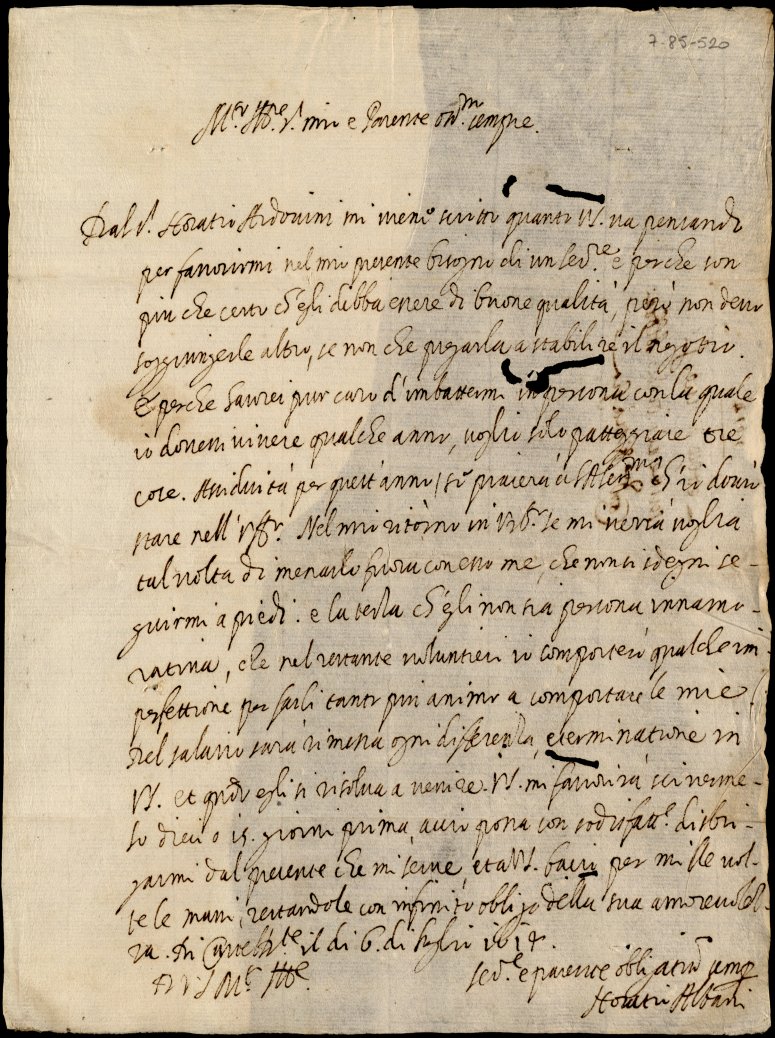 7-85-520
M.r Ill.re S.r mio e Parente oss.mo sempre.
Dal S.r Horatio Ardovini mi viene scritto quanto VS. va pensando
per favorirmi nel mio presente bisogno di un ser.re e perche son
piu che certo ch'egli debba essere di buone qualità, però non devo
soggiungerle altro, se non che pregarla a stabilire il negotio.
E perche havrei pur caro d'imbattermi in persona con la quale
io dovessi vivere qualche anno, voglio solo patteggiare tre
cose. Assiduità per quest'anno, ch'io dovrò
stare nell' Nel mio ritorno in se mi verrà voglia
tal volta di menarlo fuora con esso me, che non si sdegni se-
guirmi a piedi. e la terza ch'egli non sia persona innamo-
rativa, che nel restante voluntieri io comporterò qualche im-
perfettione per farli tanto più animo a comportare le mie.
Nel salario sarà rimessa ogni differenza, e terminatione in
VS. et quando egli si risolva a venire. VS. mi favorirà scriverme-
lo dieci o 15. giorni prima, acciò possa con sodisfatt.e disbri-
garmi dal presente che mi serve, et a VS. bacio per mille vol-
te le mani, restandole con infinito obligo della sua amorevolez-
za. Di il dì 6. di luglio 1614.
Di VS M.to Ill.re
Ser.re e parente obligatiss.o sempre
Horatio Albani